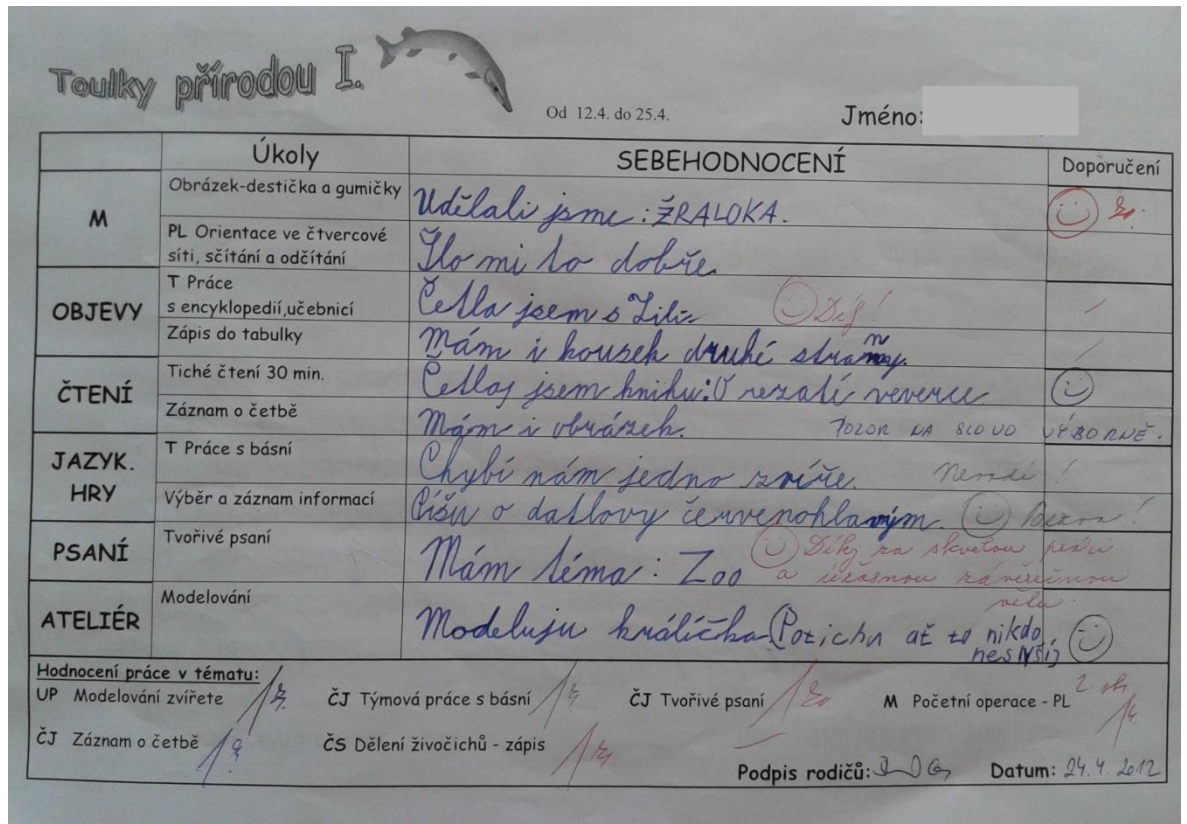 Toulky přírodou I.
Od 12.4. do 25.4.
Jméno:
Úkoly
SEBEHODNOCENÍ
Doporučení
M
Obrázek-destička a gumičky
Udělali jsme: ŽRALOKA.
PL Orientace ve čtvercové
síti, sčítání a odčítání
Šlo mi to dobře.
OBJEVY
T Práce
s encyklopedií,učebnicí
Četla jsem s Lili
Díky!
Zápis do tabulky
Mám i kousek druhé
ČTENÍ
Tiché čtení 30 min.
jsem knihu: O rezaté veverce
Záznam o četbě
Mám i obrázek.
POZOR NA SLOVO VÝBORNĚ.
JAZYK.
HRY
T Práce s básní
Chybí nám jedno zvíře.
Nevadí!
Výběr a záznam informací
Píšu o datlovy
PSANÍ
Tvořivé psaní
Mám téma: Zoo
Díky za skvělou práci
a úžasnou závěrečnou
větu.
ATELIÉR
Modelování
Modeluju králíčka Potichu ať to nikdo
Hodnocení práce v tématu:
UP Modelování zvířete
ČJ Týmová práce s básní
ČJ Tvořivé psaní
M Početní operace - PL
ČJ Záznam o četbě
ČS Dělení živočichů - zápis
Podpis rodičů:
Datum: 24.4 2012